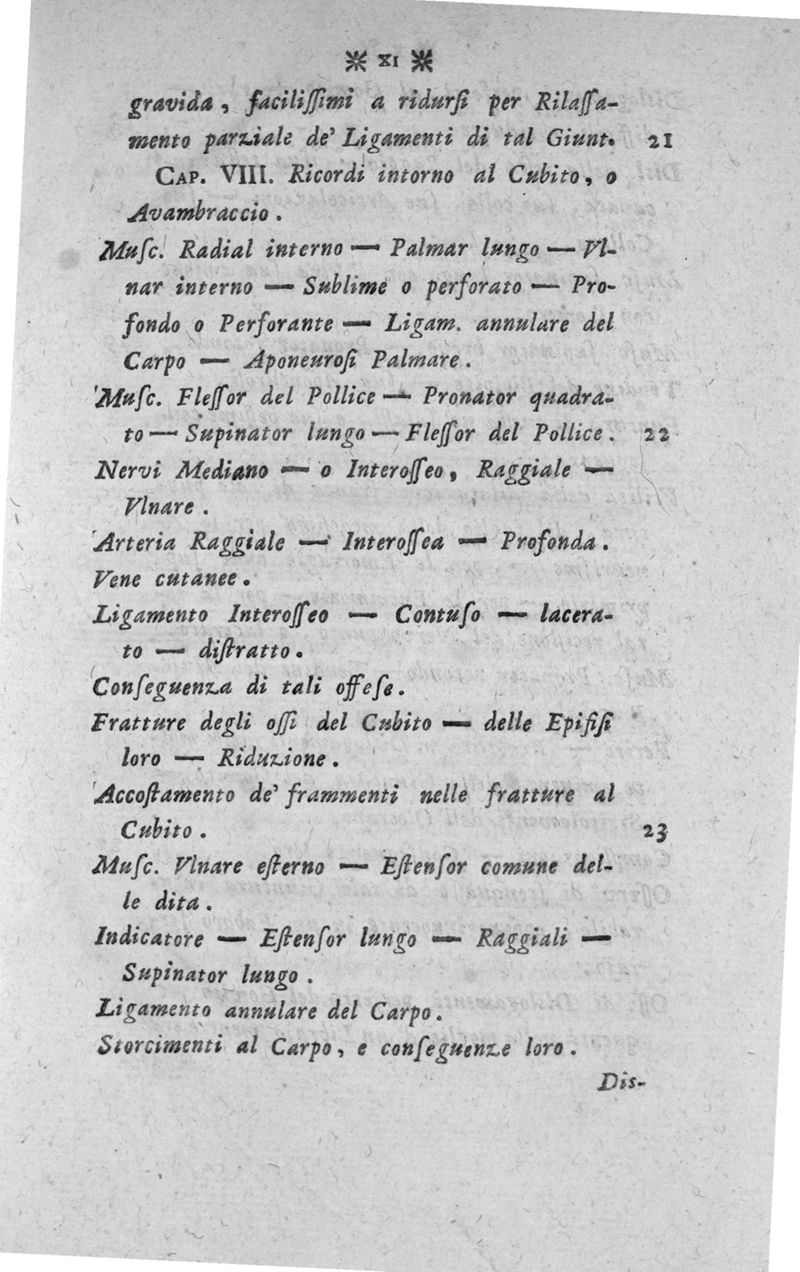 ❋ XI ❋
gravida, faciliſſimi a ridurſi per Rilaſſa-
mento parziale de' Ligamenti di tal Giunt. 21
CAP. VIII. Ricordi intorno al Cubito, o
Avambraccio.
Muſc. Radial interno — Palmar lungo — Vl-
nar interno — Sublime o perforato — Pro-
fondo o Perforante — Ligam. annulare del
Carpo — Aponeuroſi Palmare.
Muſc. Fleſſor del Pollice — Pronator quadra-
to — Supinator lungo — Fleſſor del Pollice. 22
Nervi Mediano — o Interoſſeo, Raggiale —
Vlnare.
Arteria Raggiale — Interoſſea — Profonda.
Vene cutanee.
Ligamento Interoſſeo — Contuſo — lacera-
to — diſtratto.
Conſeguenza di tali offeſe.
Fratture degli oſſi del Cubito — delle Epifiſi
loro — Riduzione.
Accoſtamento de' frammenti nelle fratture al
Cubito. 23
Muſc. Vlnare eſterno — Eſtenſor comune del-
le dita.
Indicatore — Eſtenſor lungo — Raggiali —
Supinator lungo.
Ligamento annulare del Carpo.
Storcimenti al Carpo, e conſeguenze loro.
Dis-